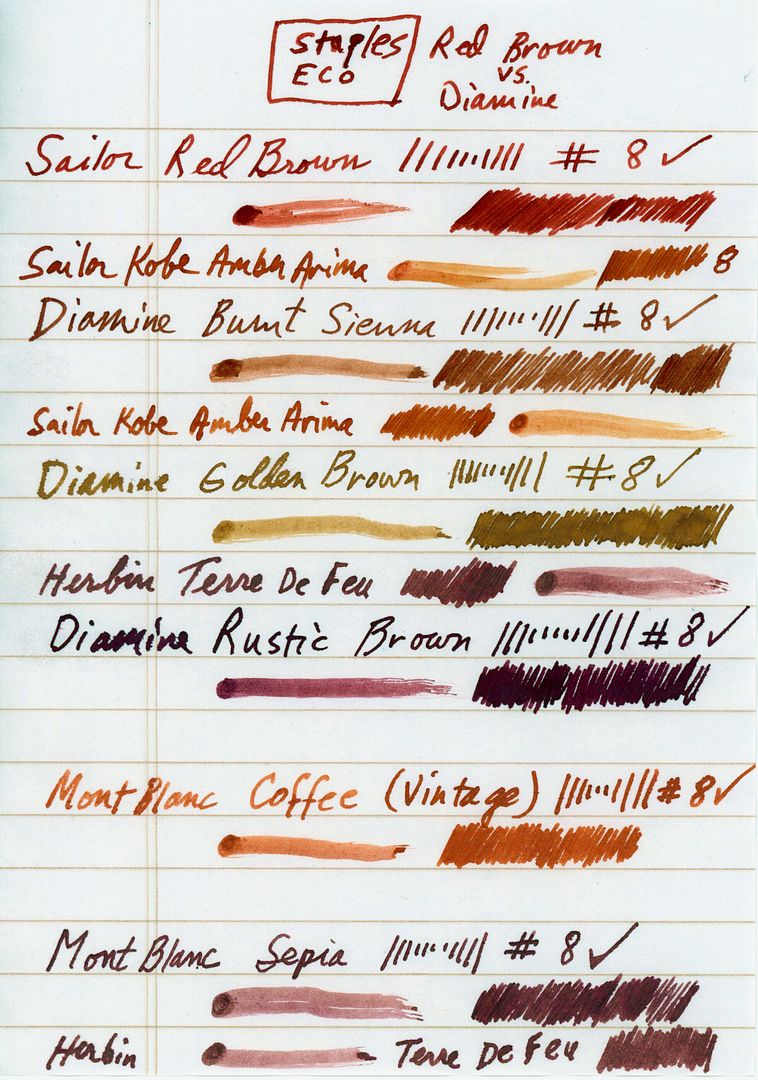 Staples Red Brown
ECO vs.
Diamine
Sailor Red Brown # 8 ✓
Sailor Kobe Amber Arima 8
Diamine Burnt Sienna # 8 ✓
Sailor Kobe Amber Arima
Diamine Golden Brown # 8 ✓
Herbin Terre De Feu
Diamine Rustic Brown # 8 ✓
Mont Blanc Coffee (Vintage) # 8 ✓
Mont Blanc Sepia # 8 ✓
Herbin Terre De Feu